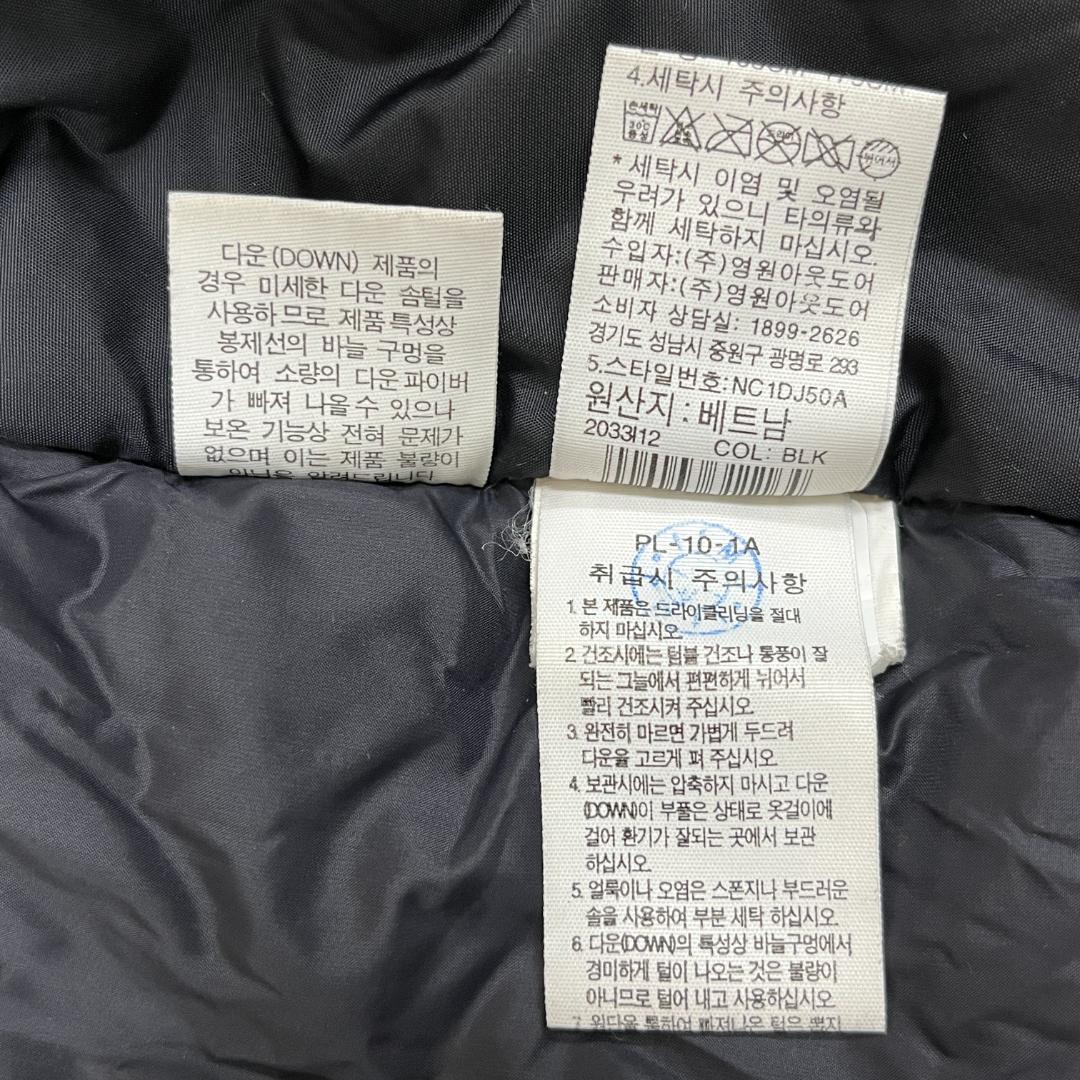 다운(DOWN) 제품의
경우 미세한 다운 솜털을
사용하므로 제품특성상
봉제선의 바늘 구멍을
통하여 소량의 다운파이버
가 빠져 나올수 있으나
보온 기능상 전혀 문제가
없으며 이는 제품 불량이
아님을 알려드립니다
4.세탁시 주의사항
손세탁
30℃
중성
드라이
뉘어서
* 세탁시 이염 및 오염될
우려가 있으니 타의류와
함께 세탁하지 마십시오.
수입자:(주)영원아웃도어
판매자:(주)영원아웃도어
소비자 상담실: 1899-2626
경기도 성남시 중원구 광명로 293
5.스타일번호:NC1DJ50A
원산지:베트남
COL: BLK
PL-10-1A
취급시 주의사항
1. 본 제품은 드라이클리닝을 절대
하지 마십시오.
2. 건조시에는 텀블 건조나 통풍이 잘
되는 그늘에서 편편하게 뉘어서
빨리 건조시켜 주십시오.
3. 완전히 마르면 가볍게 두드려
다운을 고르게 펴 주십시오
4. 보관시에는 압축하지 마시고 다운
(DOWN)이 부풀은 상태로 옷걸이에
걸어 환기가 잘되는 곳에서 보관
하십시오.
5. 얼룩이나 오염은 스폰지나 부드러운
솔을 사용하여 부분 세탁 하십시오.
6. 다운(DOWN)의 특성상 바늘구멍에서
경미하게 털이 나오는 것은 불량이
아니므로 털어 내고 사용하십시오
7. 원단을 통하여 빠져나온 털은 뽑지